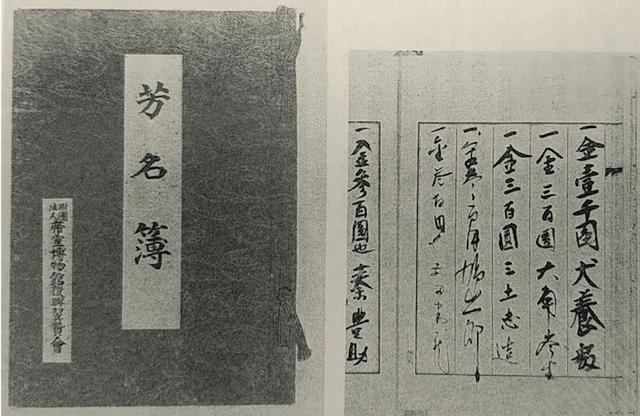 芳名簿
財團法人帝室博物館復興翼賛會
一金壹千圓 犬養毅
一金三百圓 大角岑生
一金三百圓 三土忠造
一金参百円 鳩山一郎
一金参百円
一金參百圓也 秦豊助